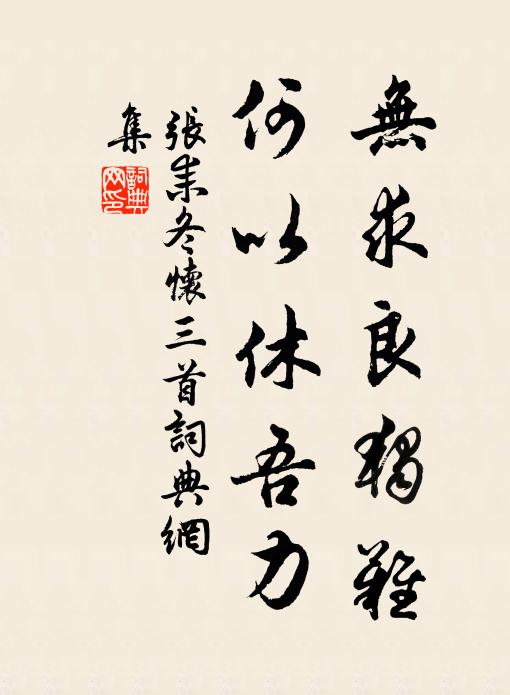 無求良獨難
何以休吾力
張耒冬懷三首詞典網
集
詞典
网印